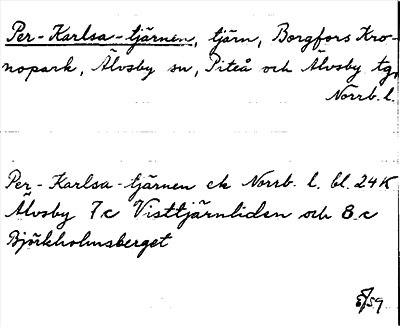 Per-Karlsa-tjärnen, tjärn, Borgfors Kro-
nopark, Älvsby sn, Piteå och Älvsby tg,
Norrb. l.
Per-Karlsa-tjärnen ek Norrb. l. bl. 24K
Älvsby 7c Visttjärnliden och 8c
Björkholmsberget